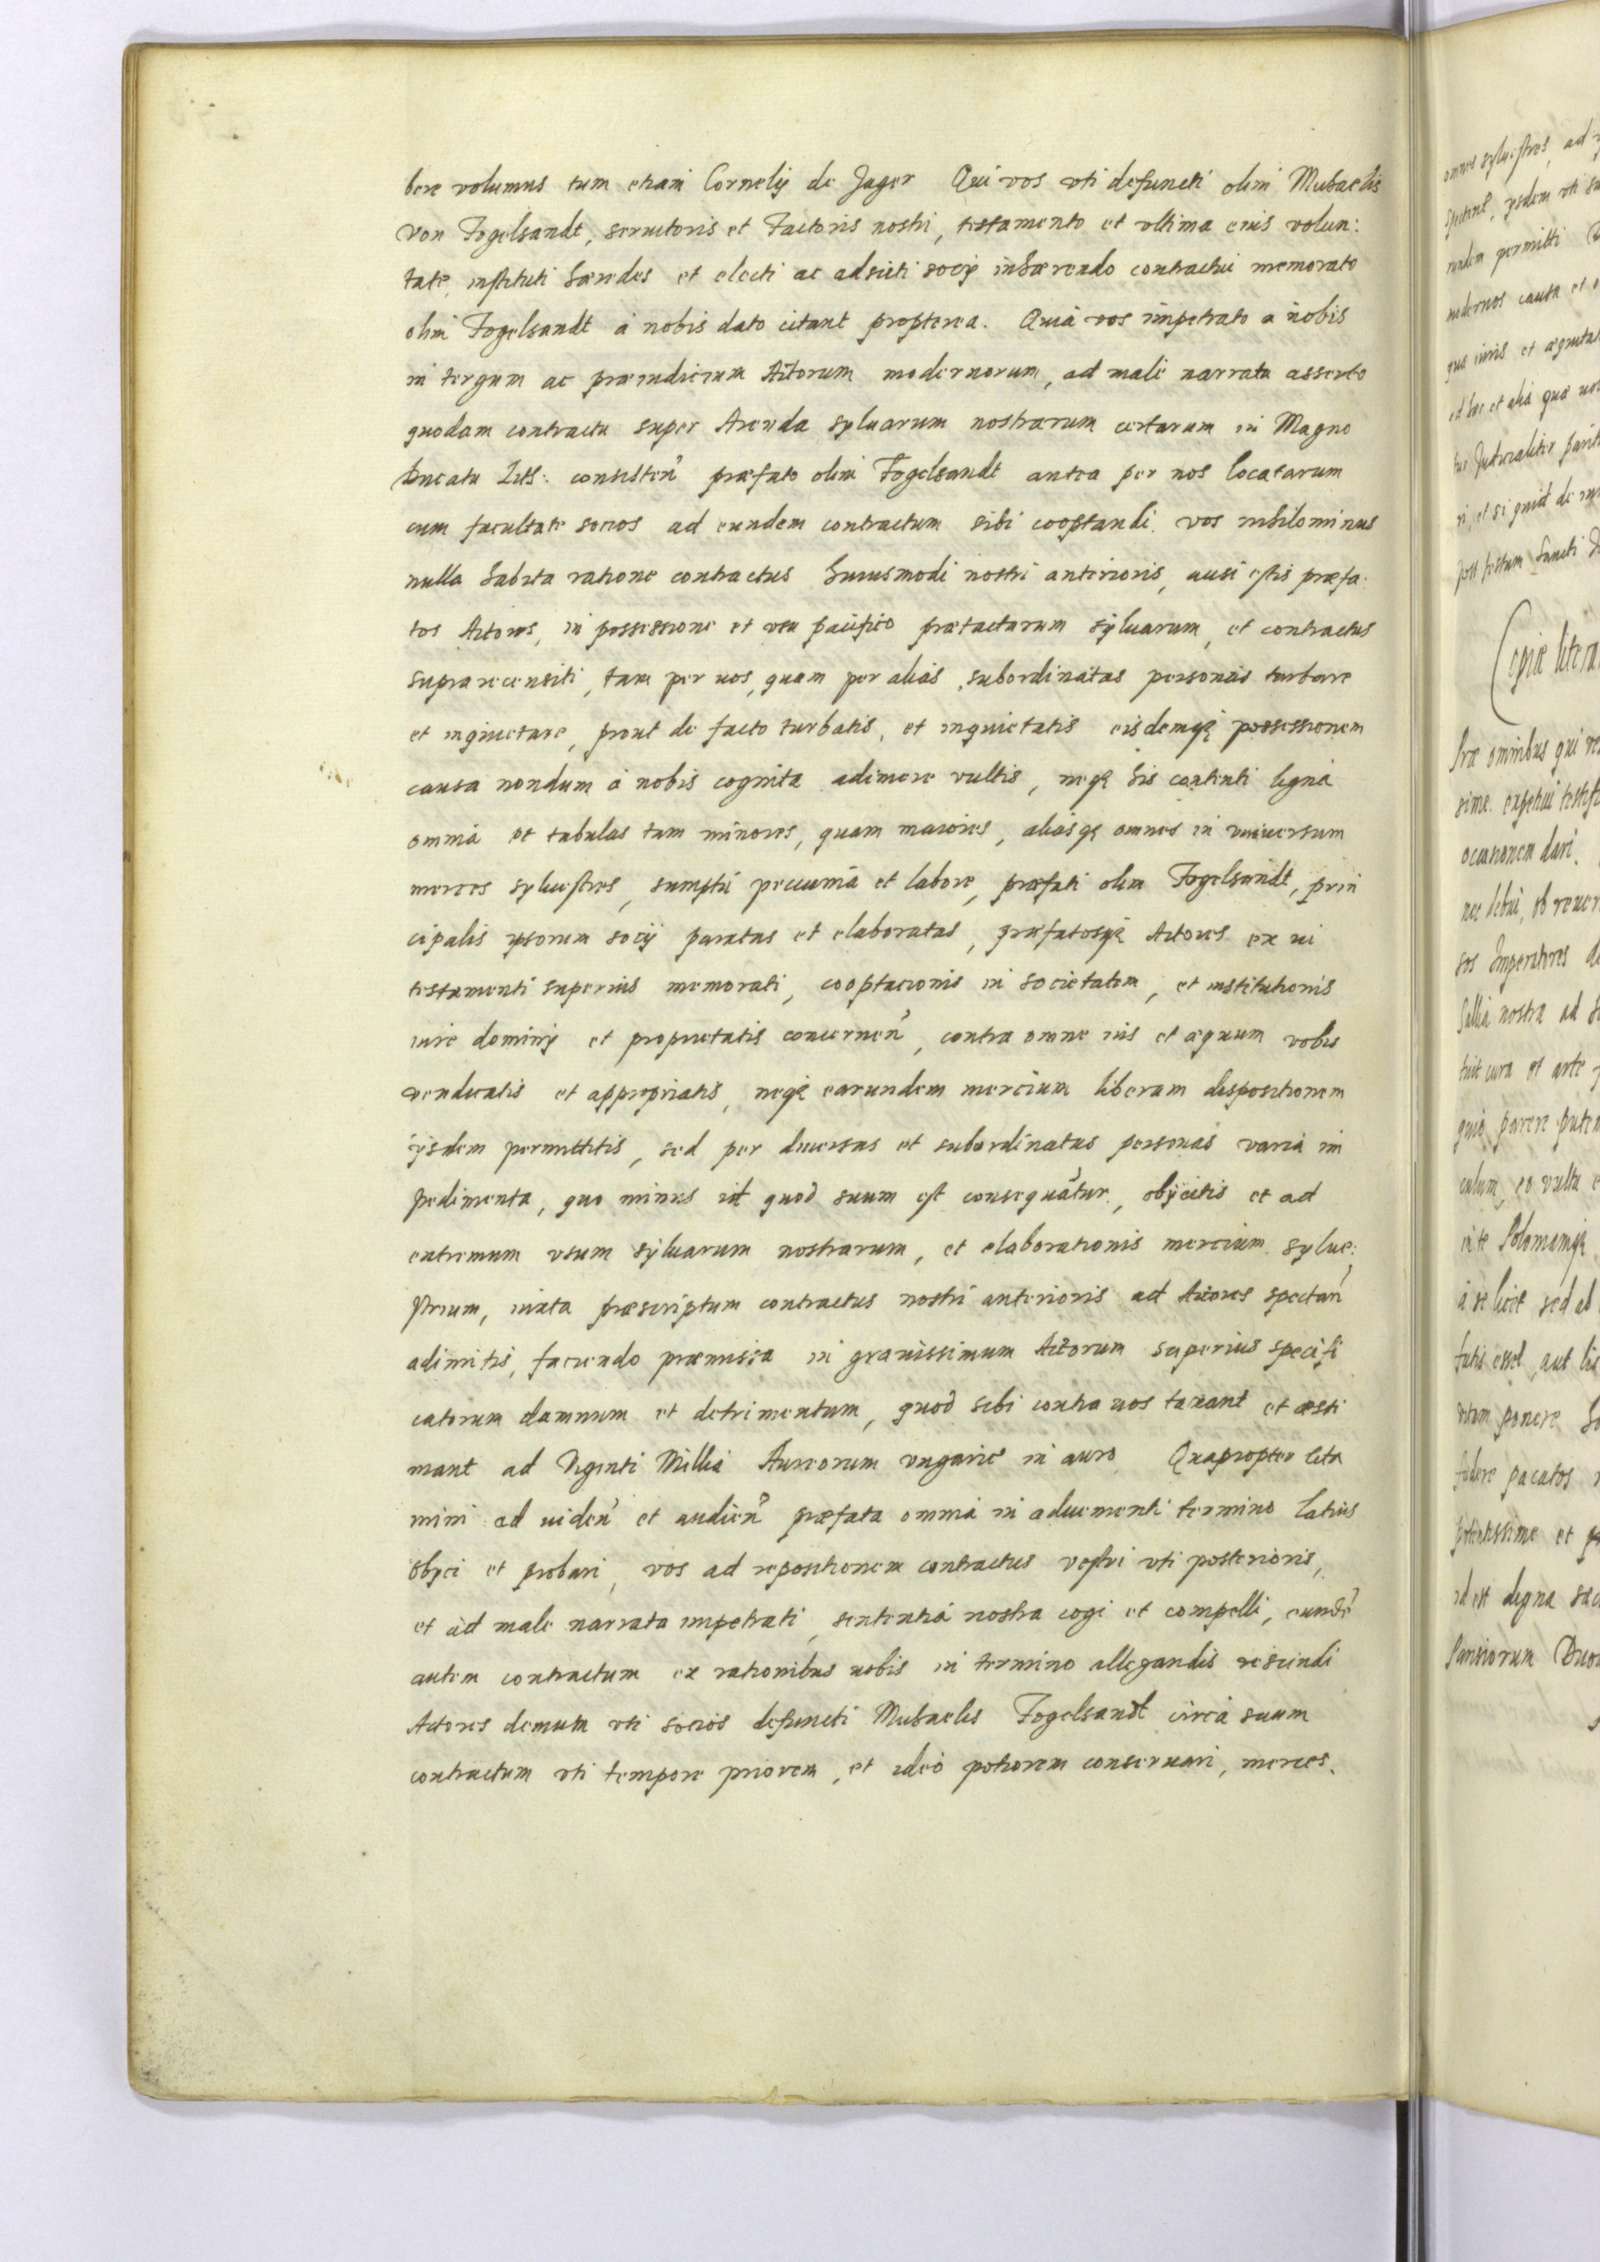 bere volumus tum etiam Cornelij de Jager Qui vos vti defuncti olim Michaelis
von Fogelsandt, seruitoris et Factoris nostri, testamento et vltima eius volun:
tate, instituti haeredes et electi ac adsciti socij inhaerendo contractui memorato
olim Fogelsandt à nobis dato citant propterea. Quia vos impetrato a nobis
in tergum ac praeiudicium Actorum modernorum, ad malè narrata asserto
quodam contractu super Arenda syluarum nostrarum certarum in Magno
Ducatu Lith: consisten̄ praefato olim Fogelsandt antea per nos locatarum
cum facultate socios ad eundem contractum sibi cooptandi. vos nihilominus
nulla habita ratione contractus huiusmodi nostri anterioris, ausi estis praefa:
tos Actores, in possessione et vsu pacifico praetactarum syluarum, et contractus
suprarecensiti, tam per uos, quam per alias, subordinatas personas turbare
et inquietare, prout de facto turbatis, et inquietatis eisdemq̨ possessionem
causa nondum à nobis cognita adimere vultis, neq̨ his contenti ligna
omnia et tabulas tam minores, quam maiores, aliasq̨ omnes in vniuersum
merces sylvestres, sumptu pecunia et labore, praefati olim Fogelsandt, prin
cipalis ipsorum socij paratas et elaboratas, praefatosq̨ Actores ex ui
testamenti superius memorati, cooptacionis in societatem, et institutionis
iure dominij et proprietatis concernen̄, contra omne ius et aequum vobis
vendicatis et appropriatis, neq̨ earundem mercium liberam dispositionem
ijsdem permittitis, sed per diuersas et subordinatas personas varia im
pedimenta, quo minus id quod suum est consequātur, obijcitis et ad
extremum vsum syluarum nostrarum, et elaborationis mercium sylve:
strium, iuxta praescriptum contractus nostri anterioris ad Actores spectan̄
adimitis, faciendo praemissa in grauissimum Actorum superius specifi
catorum damnum et detrimentum, quod sibi contra uos taxant et aesti
mant ad Viginti Millia Aureorum vngarie in auro. Quapropter cita
mini ad uiden̄ et audien̄ praefata omnia in aduenienti termino latius
obijci et probari, vos ad repositionem contractus vestri vti posterioris,
et ad male narrata impetrati, sententia nostra cogi et compelli, eundē
autem contractum ex rationibus uobis in termino allegandis rescindi
Actores demum vti socios defuncti Michaelis Fogelsandt circa suum
contractum vti tempore priorem, et ideo potiorem conseruari, merces.